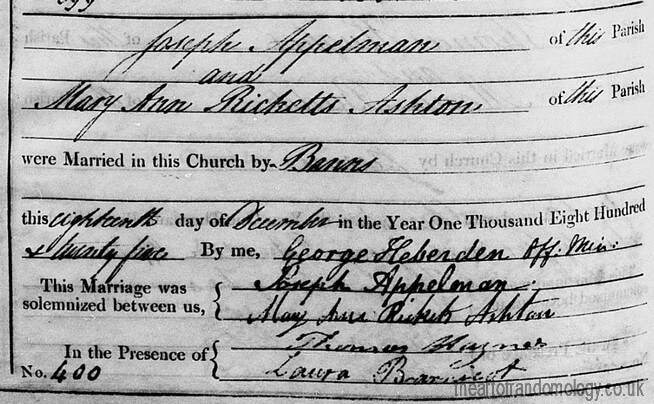 Joseph Appelman of this Parish
and
Mary Ann Ricketts Ashton of this Parish
were Married in this Church by Banns
this eighteenth day of December in the Year One Thousand Eight Hundred
& twenty five By me, George Heberden Off. Min.
This Marriage was
solemnized between us,
Joseph Appelman
Mary Ann Ricketts Ashton
In the Presence of
Thomas
Laura
No. 400
theartofrandomology.co.uk